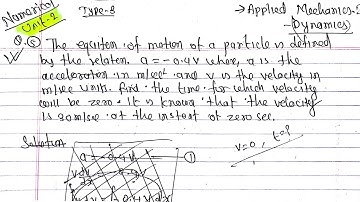 Numerical
Unit-2
Type-8
→ Applied Mechanics-I
-Dynamics)
Q. ⑥ The equiten of motion of a particle is defined
by the relaten. a = -0.4V where, a is the
acceloraton in m/sec² and v is the velocity in
m/sec units. find the time for which velocity
will be zero. It is known that the velocity
is 30 m/sec at the instant of zero sec.
Solution
v=0, t=?
a = -0.4V ①